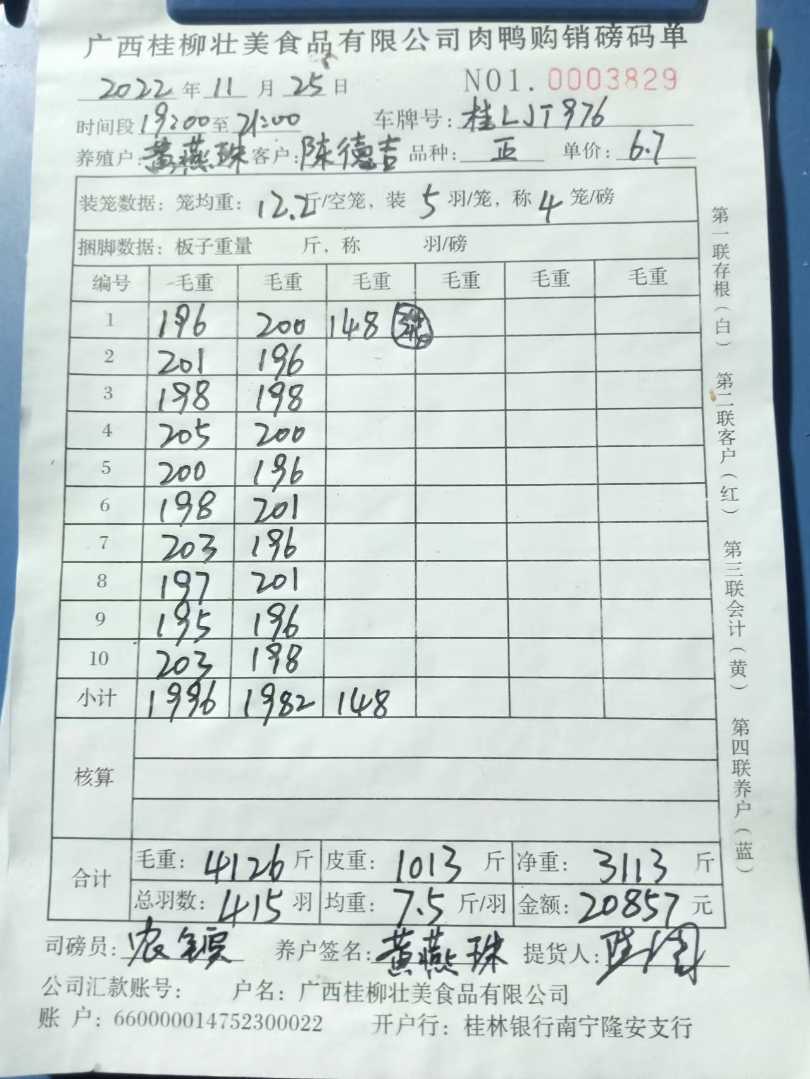 广西桂柳壮美食品有限公司肉鸭购销磅码单
2022年11月25日 NO1.0003829
时间段19:00至21:00 车牌号:桂LJT976
养殖户:黄燕珠 客户:陈德吉 品种:正 单价:6.7
装笼数据:笼均重:12.2斤/空笼,装5羽/笼,称4笼/磅
捆脚数据:板子重量 斤,称 羽/磅
编号 毛重 毛重 毛重 毛重 毛重 毛重
1 196 200 148
2 201 196
3 198 198
4 205 200
5 200 196
6 198 201
7 203 196
8 197 201
9 195 196
10 203 198
小计 1996 1982 148
核算
合计 毛重:4126斤 皮重:1013斤 净重:3113斤
总羽数:415羽 均重:7.5斤/羽 金额:20857元
司磅员: 养户签名:黄燕珠 提货人:
公司汇款账号: 户名:广西桂柳壮美食品有限公司
账 户:660000014752300022 开户行:桂林银行南宁隆安支行
第一联存根(白) 第二联客户(红) 第三联会计(黄) 第四联养户(蓝)